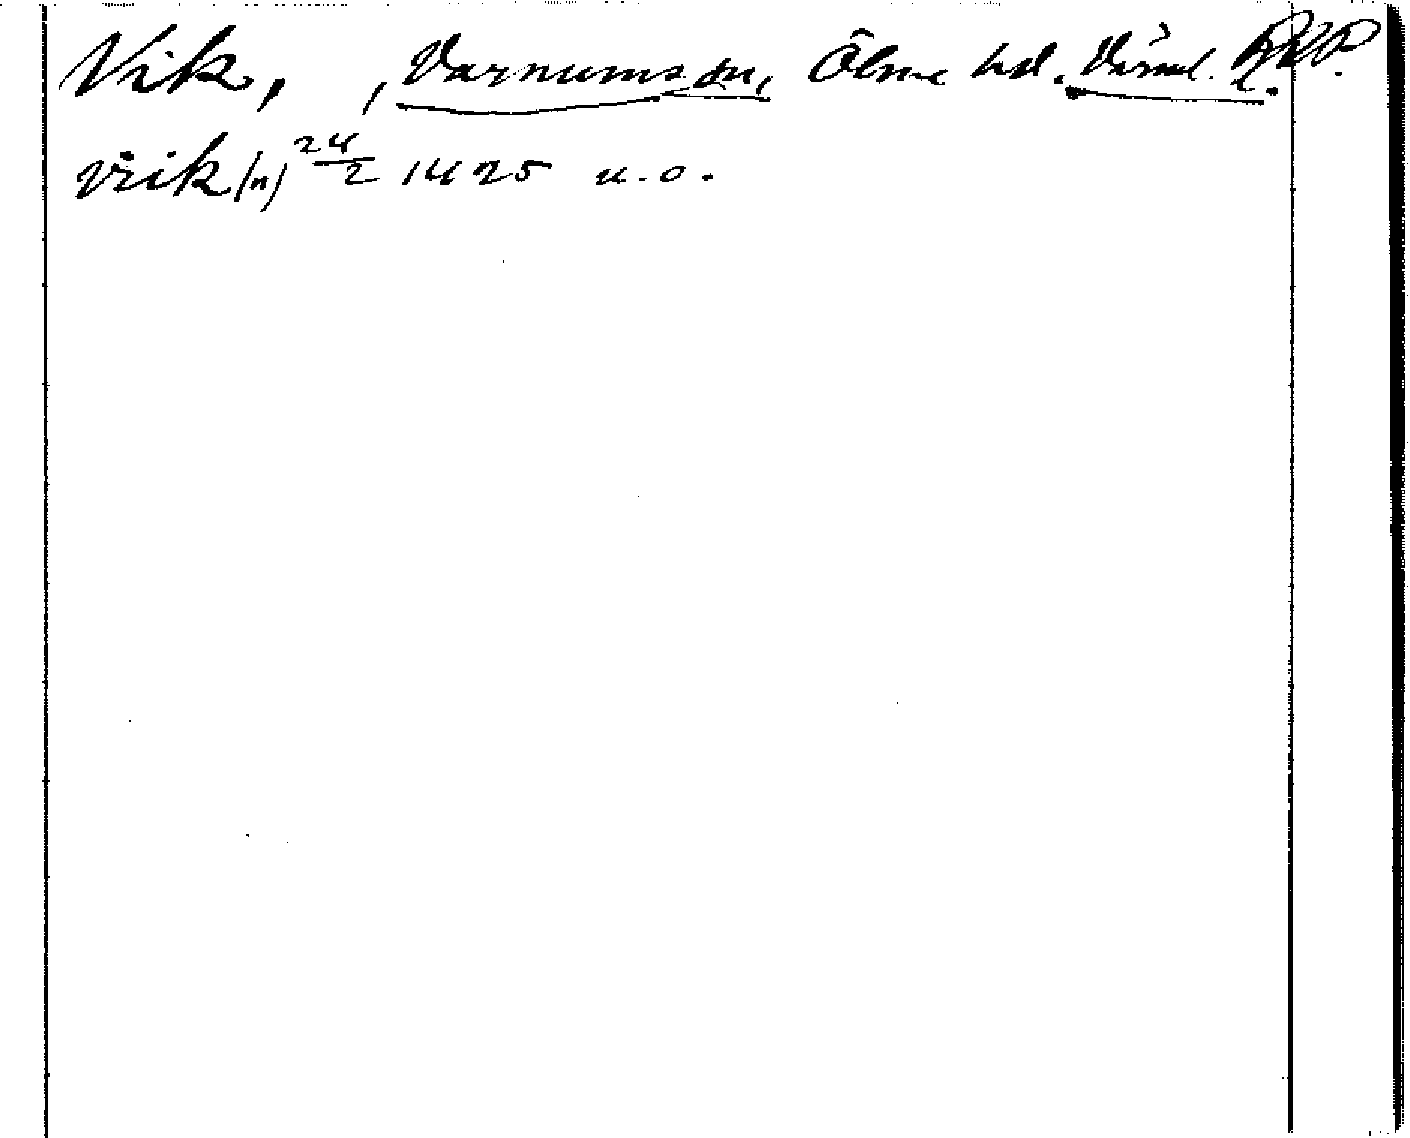 Vik, , Varnums sn, Ölme hd. Värml. RAP.
viik (n) 24/2 1425 u.o.